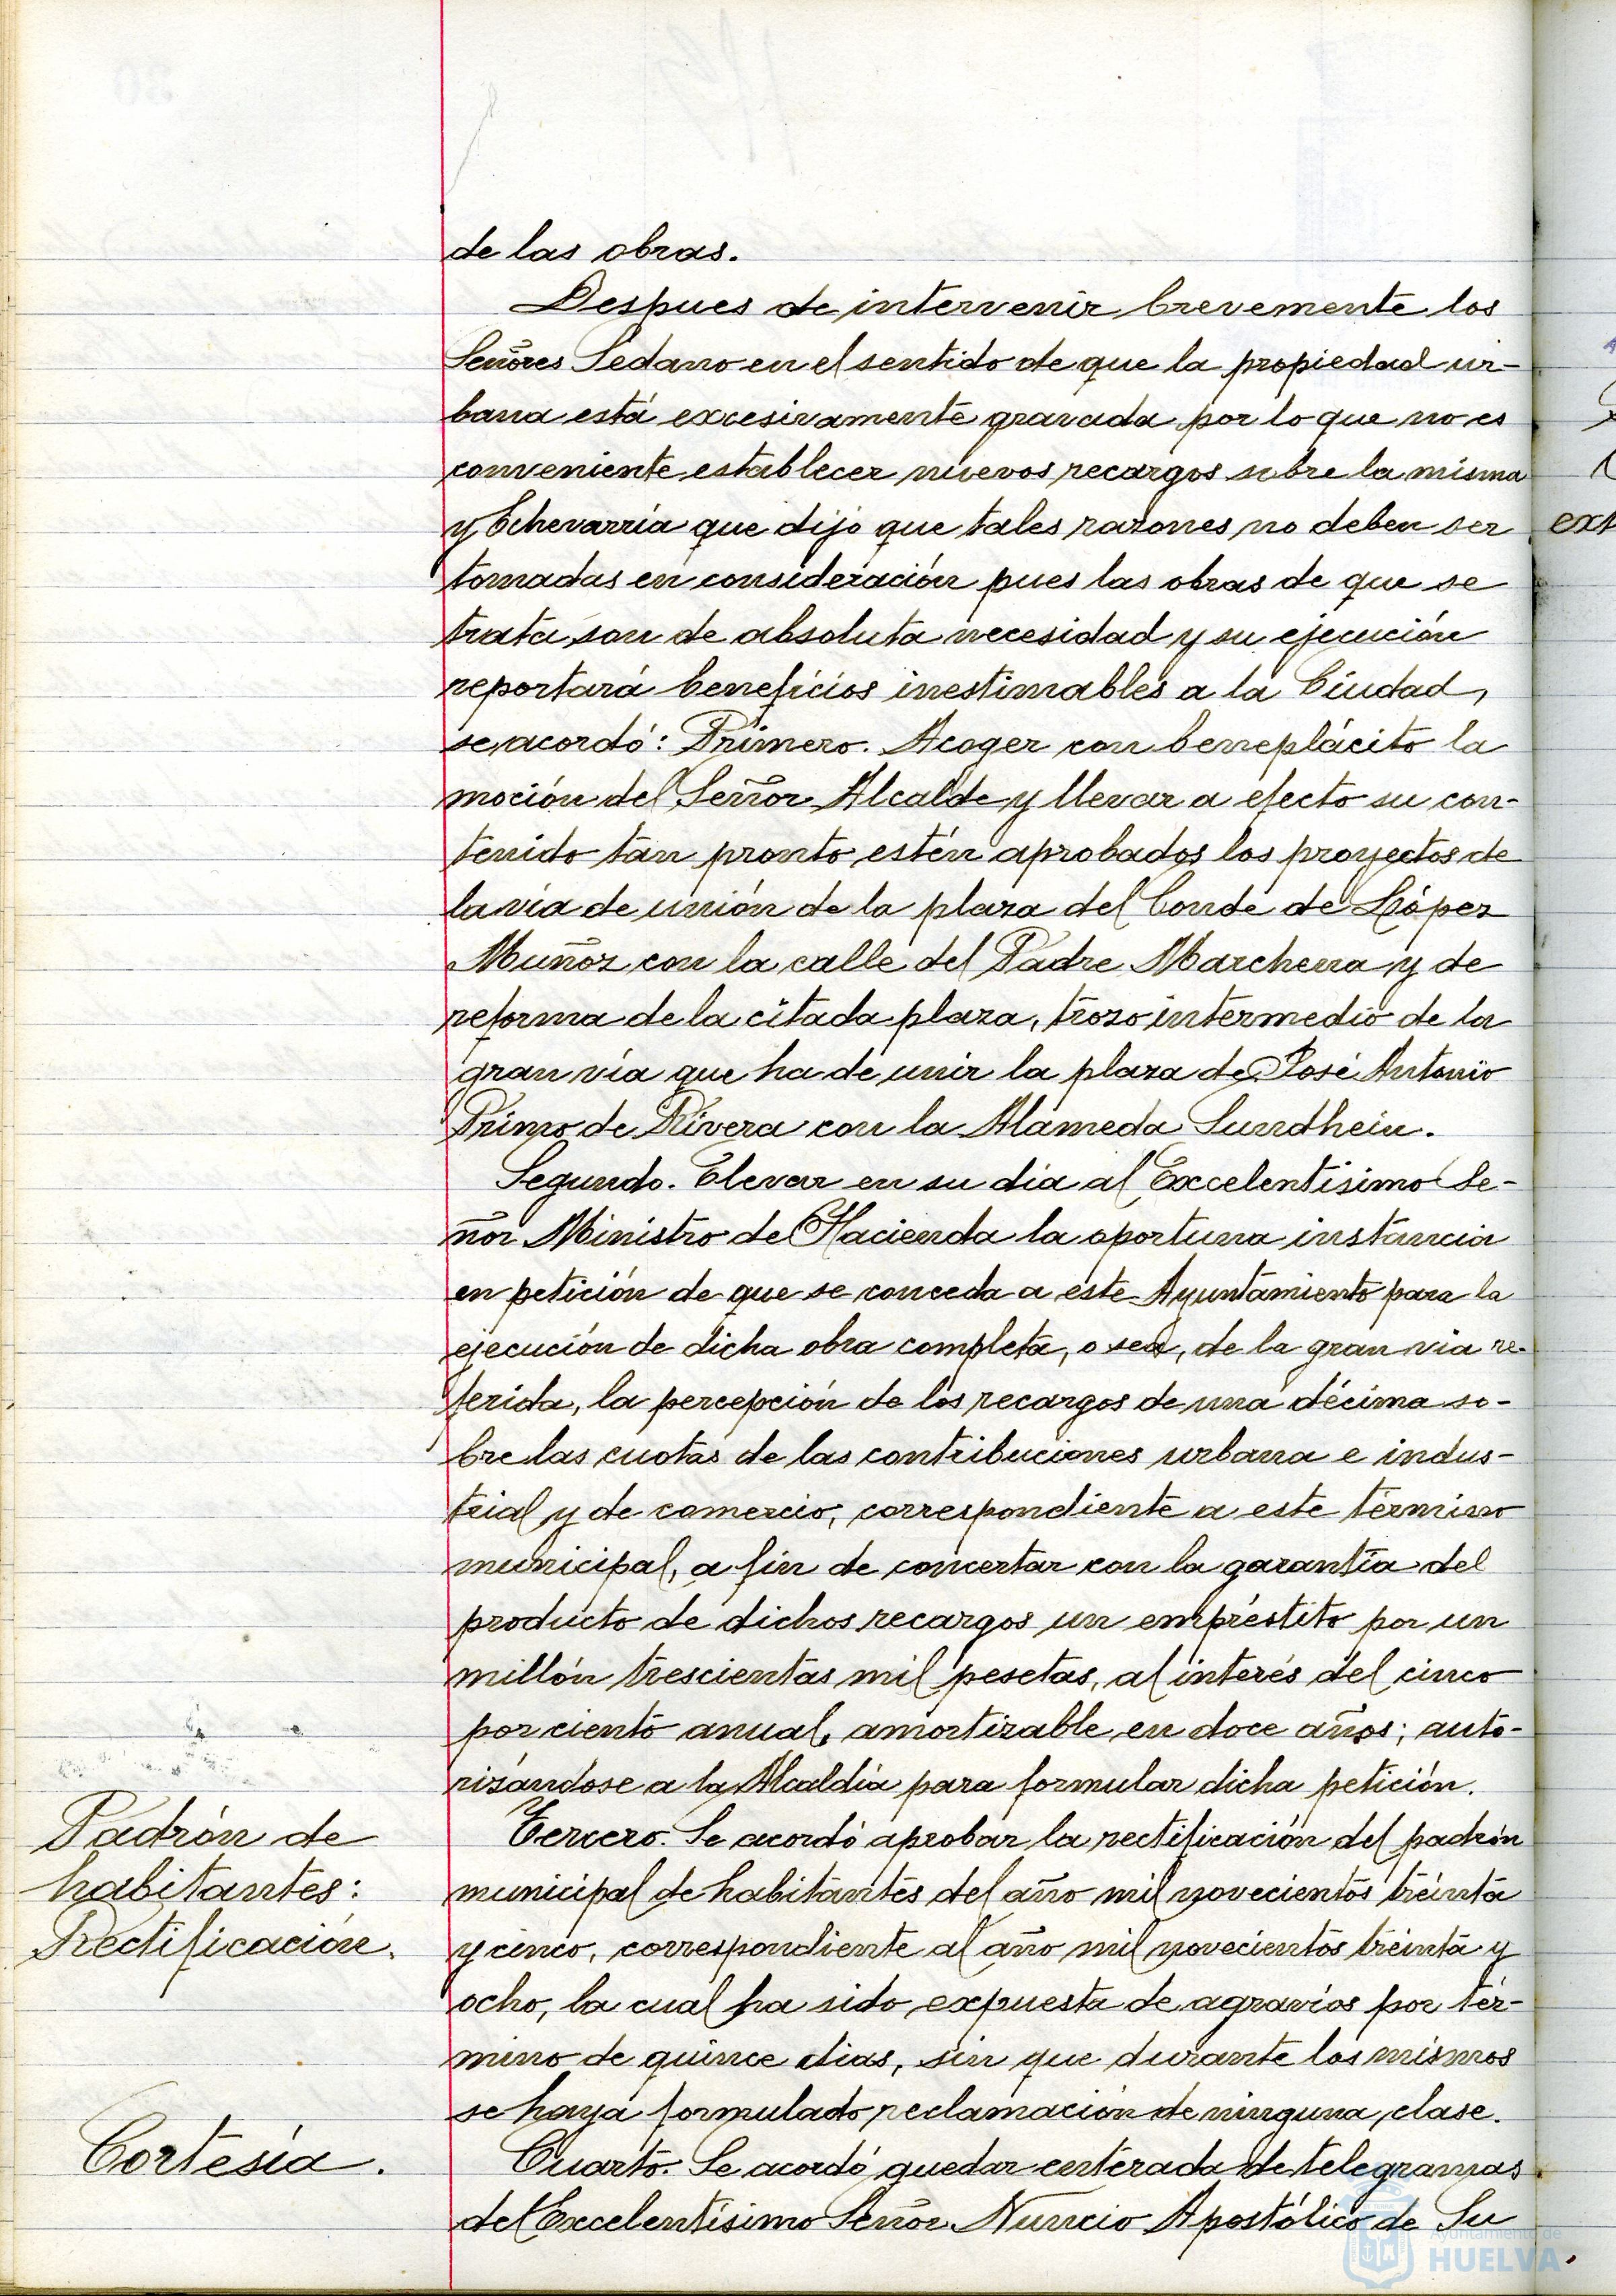 de las obras.
Despues de intervenir brevemente los
Señores Sedano en el sentido de que la propiedad ur-
bana está excesivamente gravada por lo que no es
conveniente establecer nuevos recargos sobre la misma
y Echevarria que dijo que tales razones no deben ser
tomadas en consideración pues las obras de que se
trata son de absoluta necesidad y su ejecución
reportará beneficios inestimables a la Ciudad,
se acordó: Primero. Acoger con beneplácito la
moción del Señor Alcalde y llevar a efecto su con-
tenido tan pronto estén aprobados los proyectos de
la via de unión de la plaza del Conde de López
Muñoz con la calle del Padre Marchena y de
reforma de la citada plaza, trozo intermedio de la
gran via que ha de unir la plaza de José Antonio
Primo de Rivera con la Alameda Sundhein.
Segundo. Elevar en su dia al Excelentisimo Se-
ñor Ministro de Hacienda la oportuna instancia
en petición de que se conceda a este Ayuntamiento para la
ejecución de dicha obra completa, o sea, de la gran via re-
ferida, la percepción de los recargos de una décima so-
bre las cuotas de las contribuciones urbana e indus-
trial y de comercio, correspondiente a este término
municipal, a fin de concertar con la garantía del
producto de dichos recargos un empréstito por un
millón trescientas mil pesetas, al interés del cinco
por ciento anual, amortizable en doce años; auto-
rizandose a la Alcaldía para formular dicha petición.
Padrón de
habitantes:
Rectificación.
Tercero. Se acordó aprobar la rectificación del padrón
municipal de habitantes del año mil novecientos treinta
y cinco, correspondiente al año mil novecientos treinta y
ocho, la cual ha sido expuesta de agravios por tér-
mino de quince dias, sin que durante los mismos
se haya formulado reclamación de ninguna clase.
Cortesía.
Cuarto. Se acordó quedar enterada de telegramas
del Excelentísimo Señor Nuncio Apostólico de Su
ext
Ayuntamiento de
HUELVA